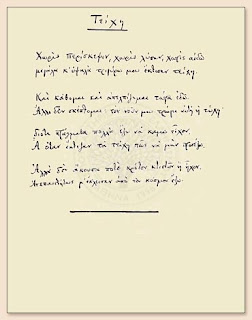 Τείχη
Χωρὶς περίσκεψιν, χωρὶς λύπην, χωρὶς αἰδώ
μεγάλα κ' ὑψηλὰ τριγύρω μου ἔκτισαν τείχη.
Καὶ κάθομαι καὶ ἀπελπίζομαι τώρα ἐδῶ.
Ἄλλο δὲν σκέπτομαι: τὸν νοῦν μου τρώγει αὐτὴ ἡ τύχη·
διότι πράγματα πολλὰ ἔξω νὰ κάμω εἶχον.
Ἆ ὅταν ἔκτιζαν τὰ τείχη πῶς νὰ μὴν προσέξω.
Ἀλλὰ δὲν ἄκουσα ποτὲ κρότον κτιστῶν ἢ ἦχον.
Ἀνεπαισθήτως μ' ἔκλεισαν ἀπὸ τὸν κόσμον ἔξω.